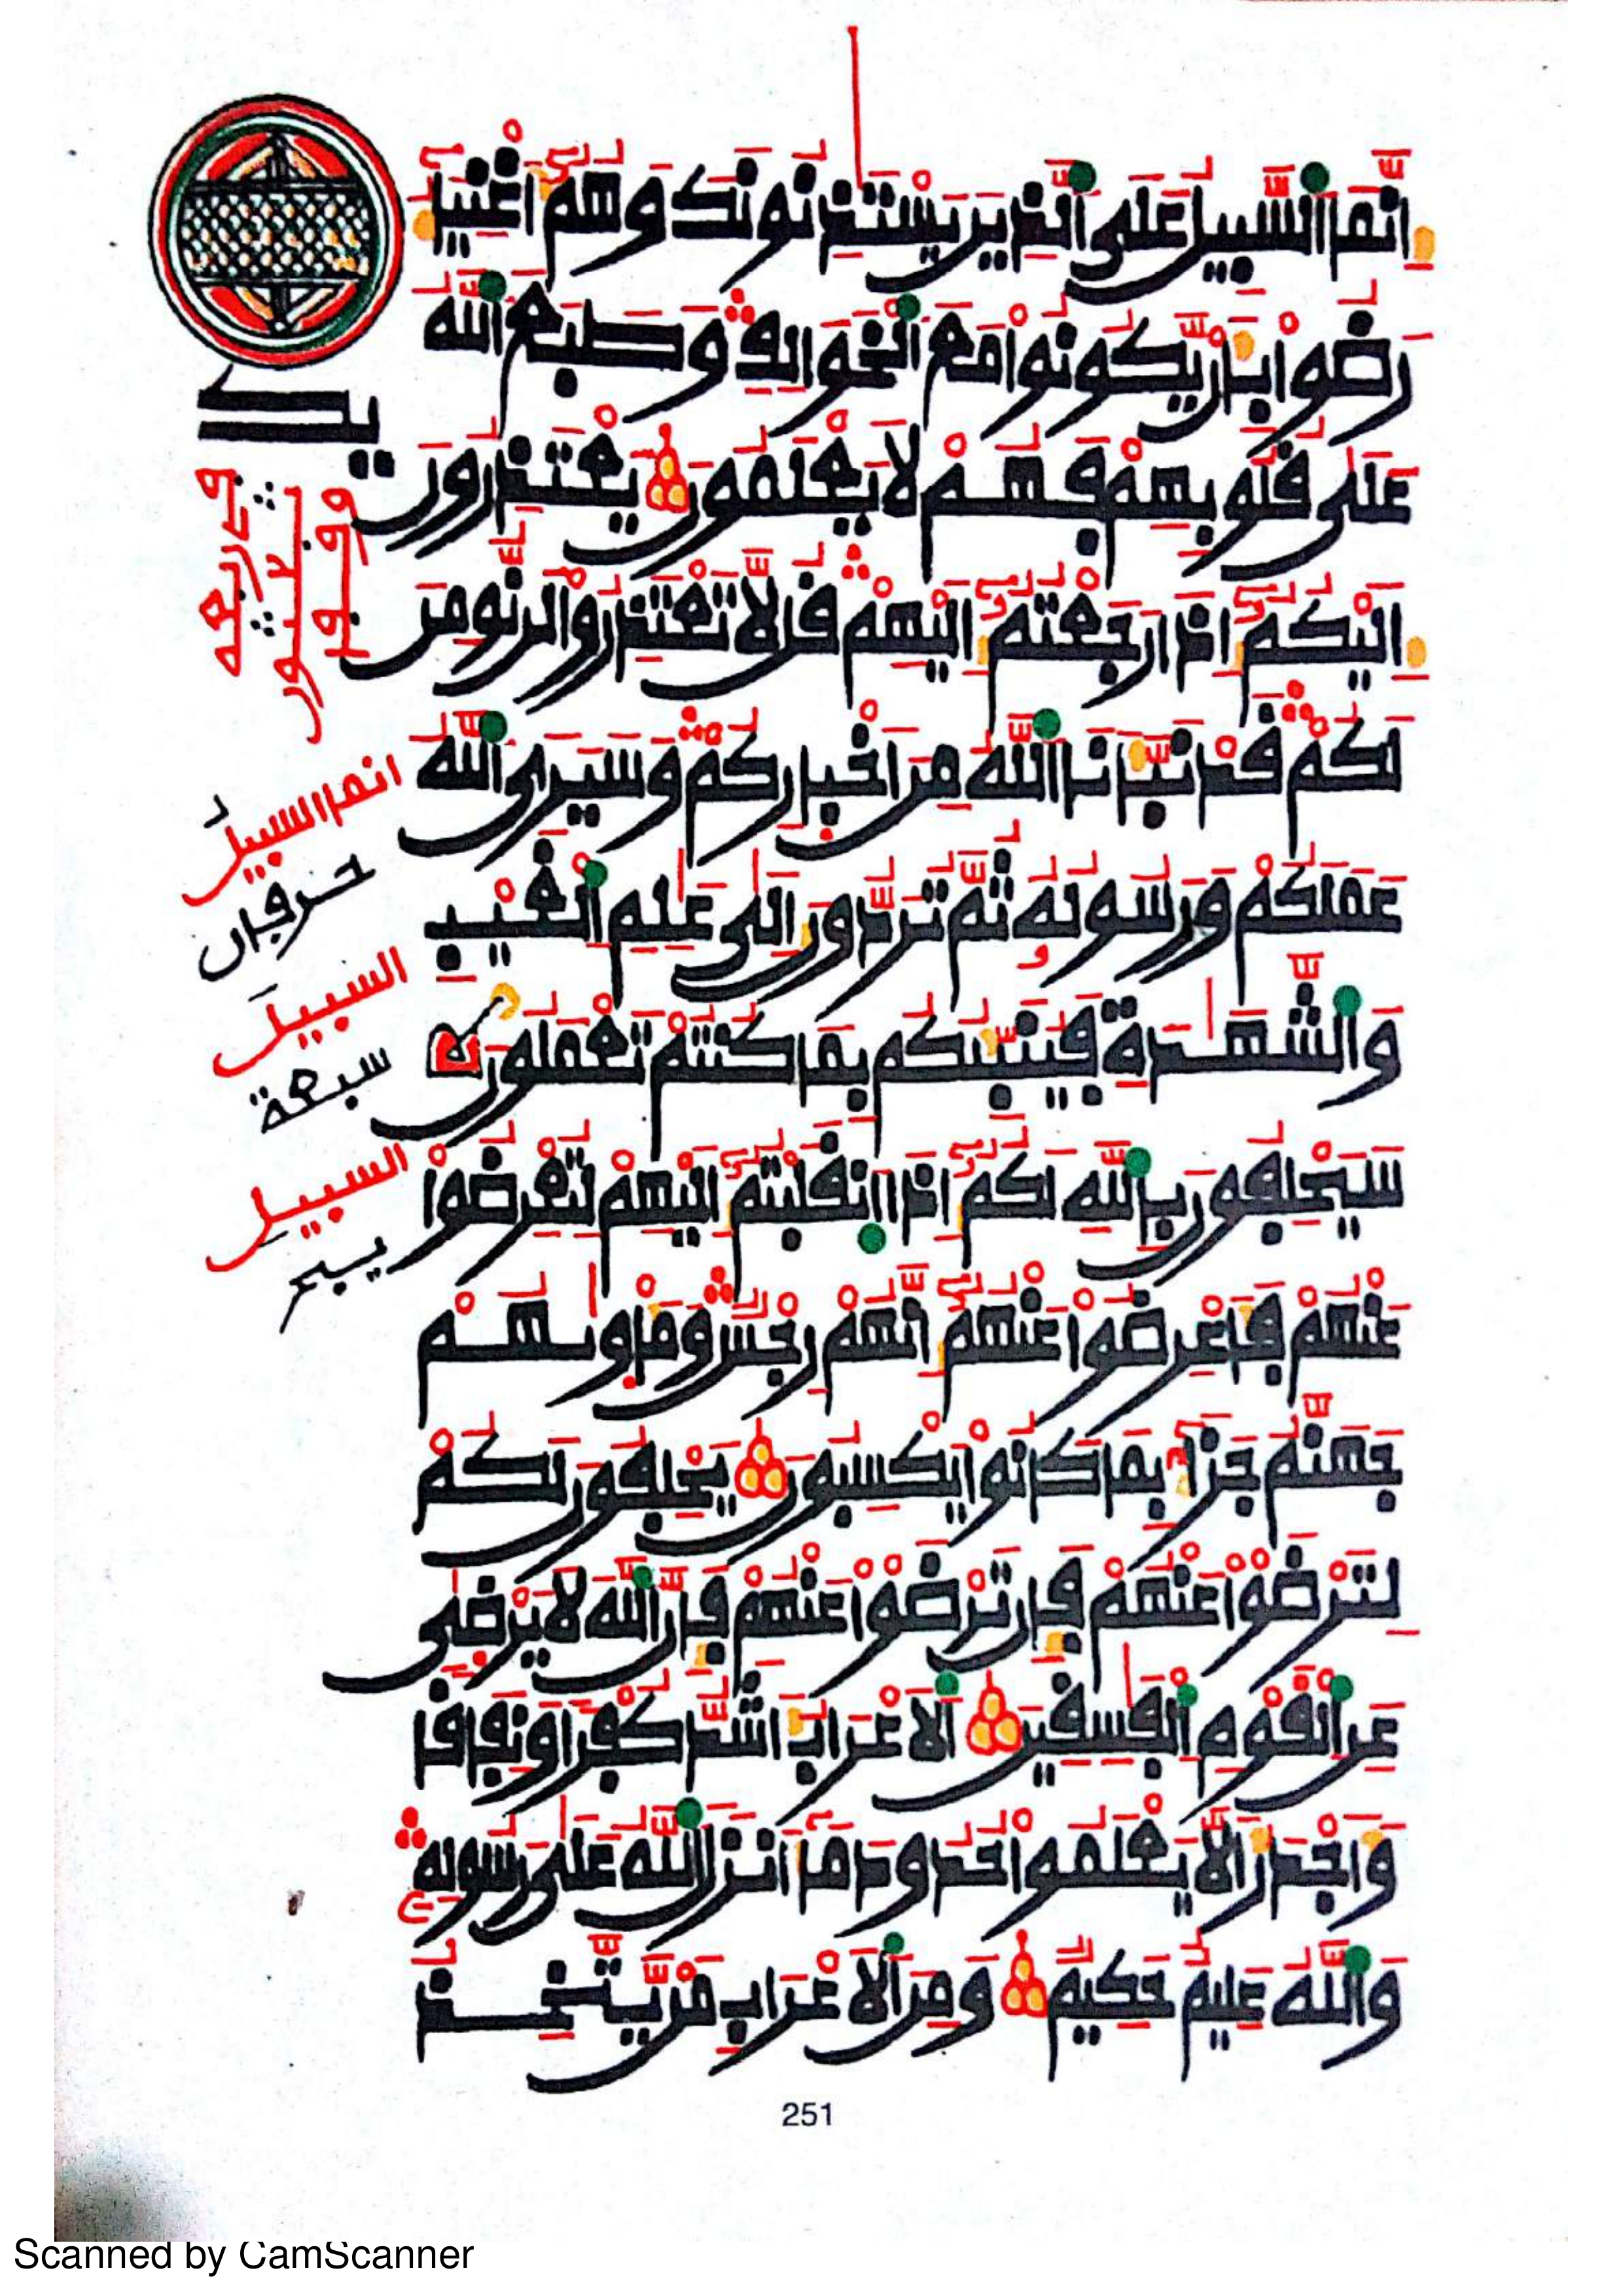 إِنَّمَا ٱلسَّبِيلُ عَلَى ٱلذِينَ يَسْتَٰذِنُونَكَ وَهُمُۥٓ أَغْنِيَآءُ
رَضُواْ بِأَنْ يَّكُونُواْ مَعَ ٱلْخَوَالِفِ وَطَبَعَ ٱللَّهُ
عَلَىٰ قُلُوبِهِمْ فَهُمْ لَا يَعْلَمُونَ يَعْتَذِرُونَ
إِلَيْكُمُۥٓ إِذَا رَجَعْتُمُۥٓ إِلَيْهِمْ قُل لَّا تَعْتَذِرُواْ لَن نُّومِنَ
لَكُمْ قَدْ نَبَّأَنَا ٱللَّهُ مِنْ أَخْبَارِكُمْ وَسَيَرَى ٱللَّهُ
عَمَلَكُمْ وَرَسُولُهُۥ ثُمَّ تُرَدُّونَ إِلَىٰ عَٰلِمِ ٱلْغَيْبِ
وَٱلشَّهَٰدَةِ فَيُنَبِّئُكُم بِمَا كُنتُمْ تَعْمَلُونَ
سَيَحْلِفُونَ بِٱللَّهِ لَكُمُۥٓ إِذَا ٱنقَلَبْتُمُۥٓ إِلَيْهِمْ لِتُعْرِضُواْ
عَنْهُمْ فَأَعْرِضُواْ عَنْهُمُۥٓ إِنَّهُمْ رِجْسٌ وَمَأْوَىٰهُمْ
جَهَنَّمُ جَزَآءً بِمَا كَانُواْ يَكْسِبُونَ يَحْلِفُونَ لَكُمْ
لِتَرْضَوْاْ عَنْهُمْ فَإِن تَرْضَوْاْ عَنْهُمْ فَإِنَّ ٱللَّهَ لَا يَرْضَىٰ
عَنِ ٱلْقَوْمِ ٱلْفَٰسِقِينَ ٱلَاعْرَابُ أَشَدُّ كُفْراً وَنِفَاقاً
وَأَجْدَرُ أَلَّا يَعْلَمُواْ حُدُودَ مَآ أَنزَلَ ٱللَّهُ عَلَىٰ رَسُولِهِۦ
وَٱللَّهُ عَلِيمٌ حَكِيمٌ وَمِنَ ٱلَاعْرَابِ مَنْ يَّتَّخِذُ
انما السبيلُ
حرفان
السبيلَ
سبعة
السبيلِ
251
Scanned by CamScanner